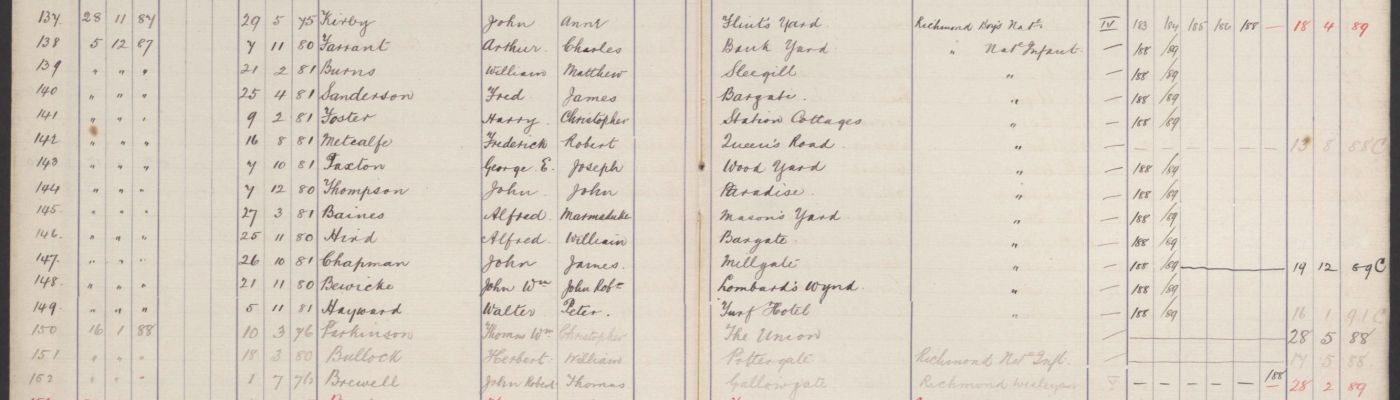 137. 28 11 87 29 5 75 Kirby John Anne Flint's Yard. Richmond Boy's Natl. IV 183 184 185 186 188 — 18 4 89
138 5 12 87 7 11 80 Tarrant Arthur. Charles Bank Yard " Natl Infant. — 188 189
139 " " " 21 2 81 Burns William Matthew Sleegill " — 188 189
140 " " " 25 4 81 Sanderson Fred James Bargate. " — 188 189
141 " " " 9 2 81 Foster Harry. Christopher Station Cottages " — 188 189
142 " " " 16 8 81 Metcalfe Frederick Robert Queen's Road " — — — — — — — 13 8 88 C
143 " " " 7 10 81 Paxton George E. Joseph Wood Yard " — 188 189
144 " " " 7 12 80 Thompson John. John Paradise. " — 188 189
145 " " " 27 3 81 Baines Alfred. Marmaduke Mason's Yard " — 188 189
146. " " " 25 11 80 Hird Alfred. William Bargate. " — 188 189
147. " " " 26 10 81 Chapman John James. Millgate " — 188 189 — 19 12 89 C
148. " " " 21 11 80 Bewicke John Wm John Robt Lombard's Wynd. " — 188 189
149. " " " 5 11 81 Hayward Walter Peter. Turf Hotel " — 188 189 16 1 91 C
150 16 1 88 10 3 76 Parkinson Thomas Wm Christopher The Union — 28 5 88
151 " " " 18 3 80 Bullock Herbert William Pottergate Richmond Natl Inft. — 17 5 88
152 " " " 1 7 76 Brewell John Robert Thomas Gallowgate Richmond Wesleyan V — — — — — 188 — 28 2 89